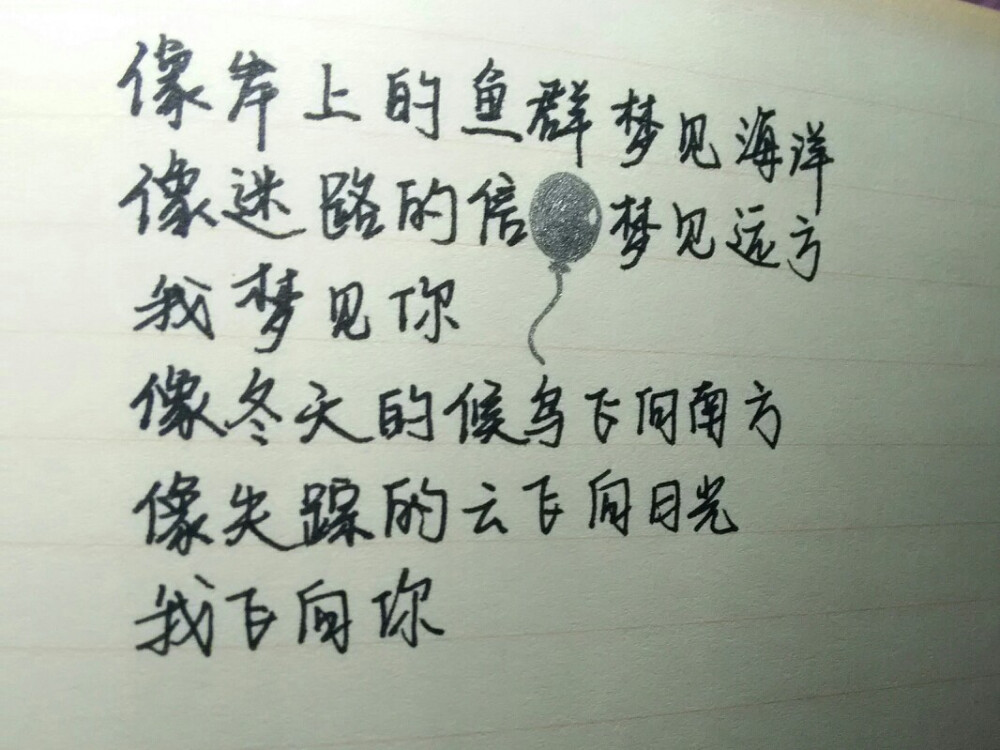 像岸上的鱼群梦见海洋
像迷路的信梦见远方
我梦见你
像冬天的候鸟飞向南方
像失踪的云飞向日光
我飞向你